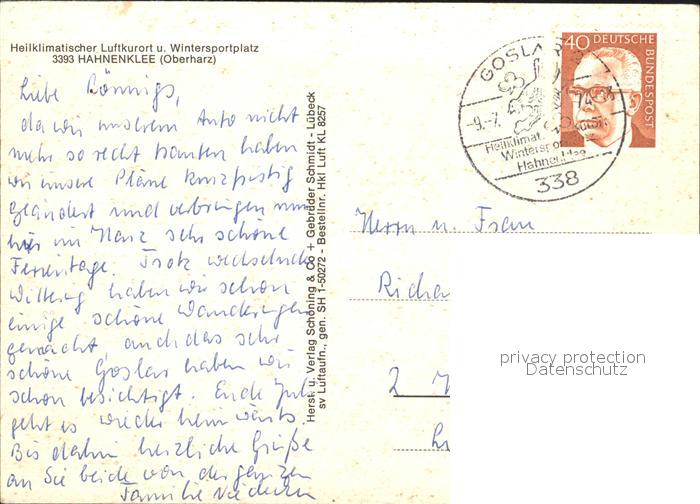 Heilklimatischer Luftkurort u. Wintersportplatz
3393 HAHNENKLEE (Oberharz)
Liebe Bönnigs,
da wir unserem Auto nicht
mehr so recht trauten haben
wir unsere Pläne kurzfristig
geändert und verbringen nun
hier im Harz sehr schöne
Ferientage. Trotz wechselnder
Witterung haben wir schon
einige schöne Wanderungen
gemacht auch das sehr
schöne Goslar haben wir
schon besichtigt. Ende Juli
geht es wieder heimwärts.
Bis dahin herzliche Grüße
an Sie beide von der ganzen
Familie
Herst. u. Verlag Schöning & Co + Gebrüder Schmidt - Lübeck
sv Luftaufn., gen. SH 1-50272 - Bestellnr. Hkl Luft KL 8257
GOSLAR
-9.-7.
74
Heilklimat.
Winterspor
Hahnenklee
338
40 DEUTSCHE
BUNDESPOST
Herrn u. Frau
Richa
2
privacy protection
Datenschutz